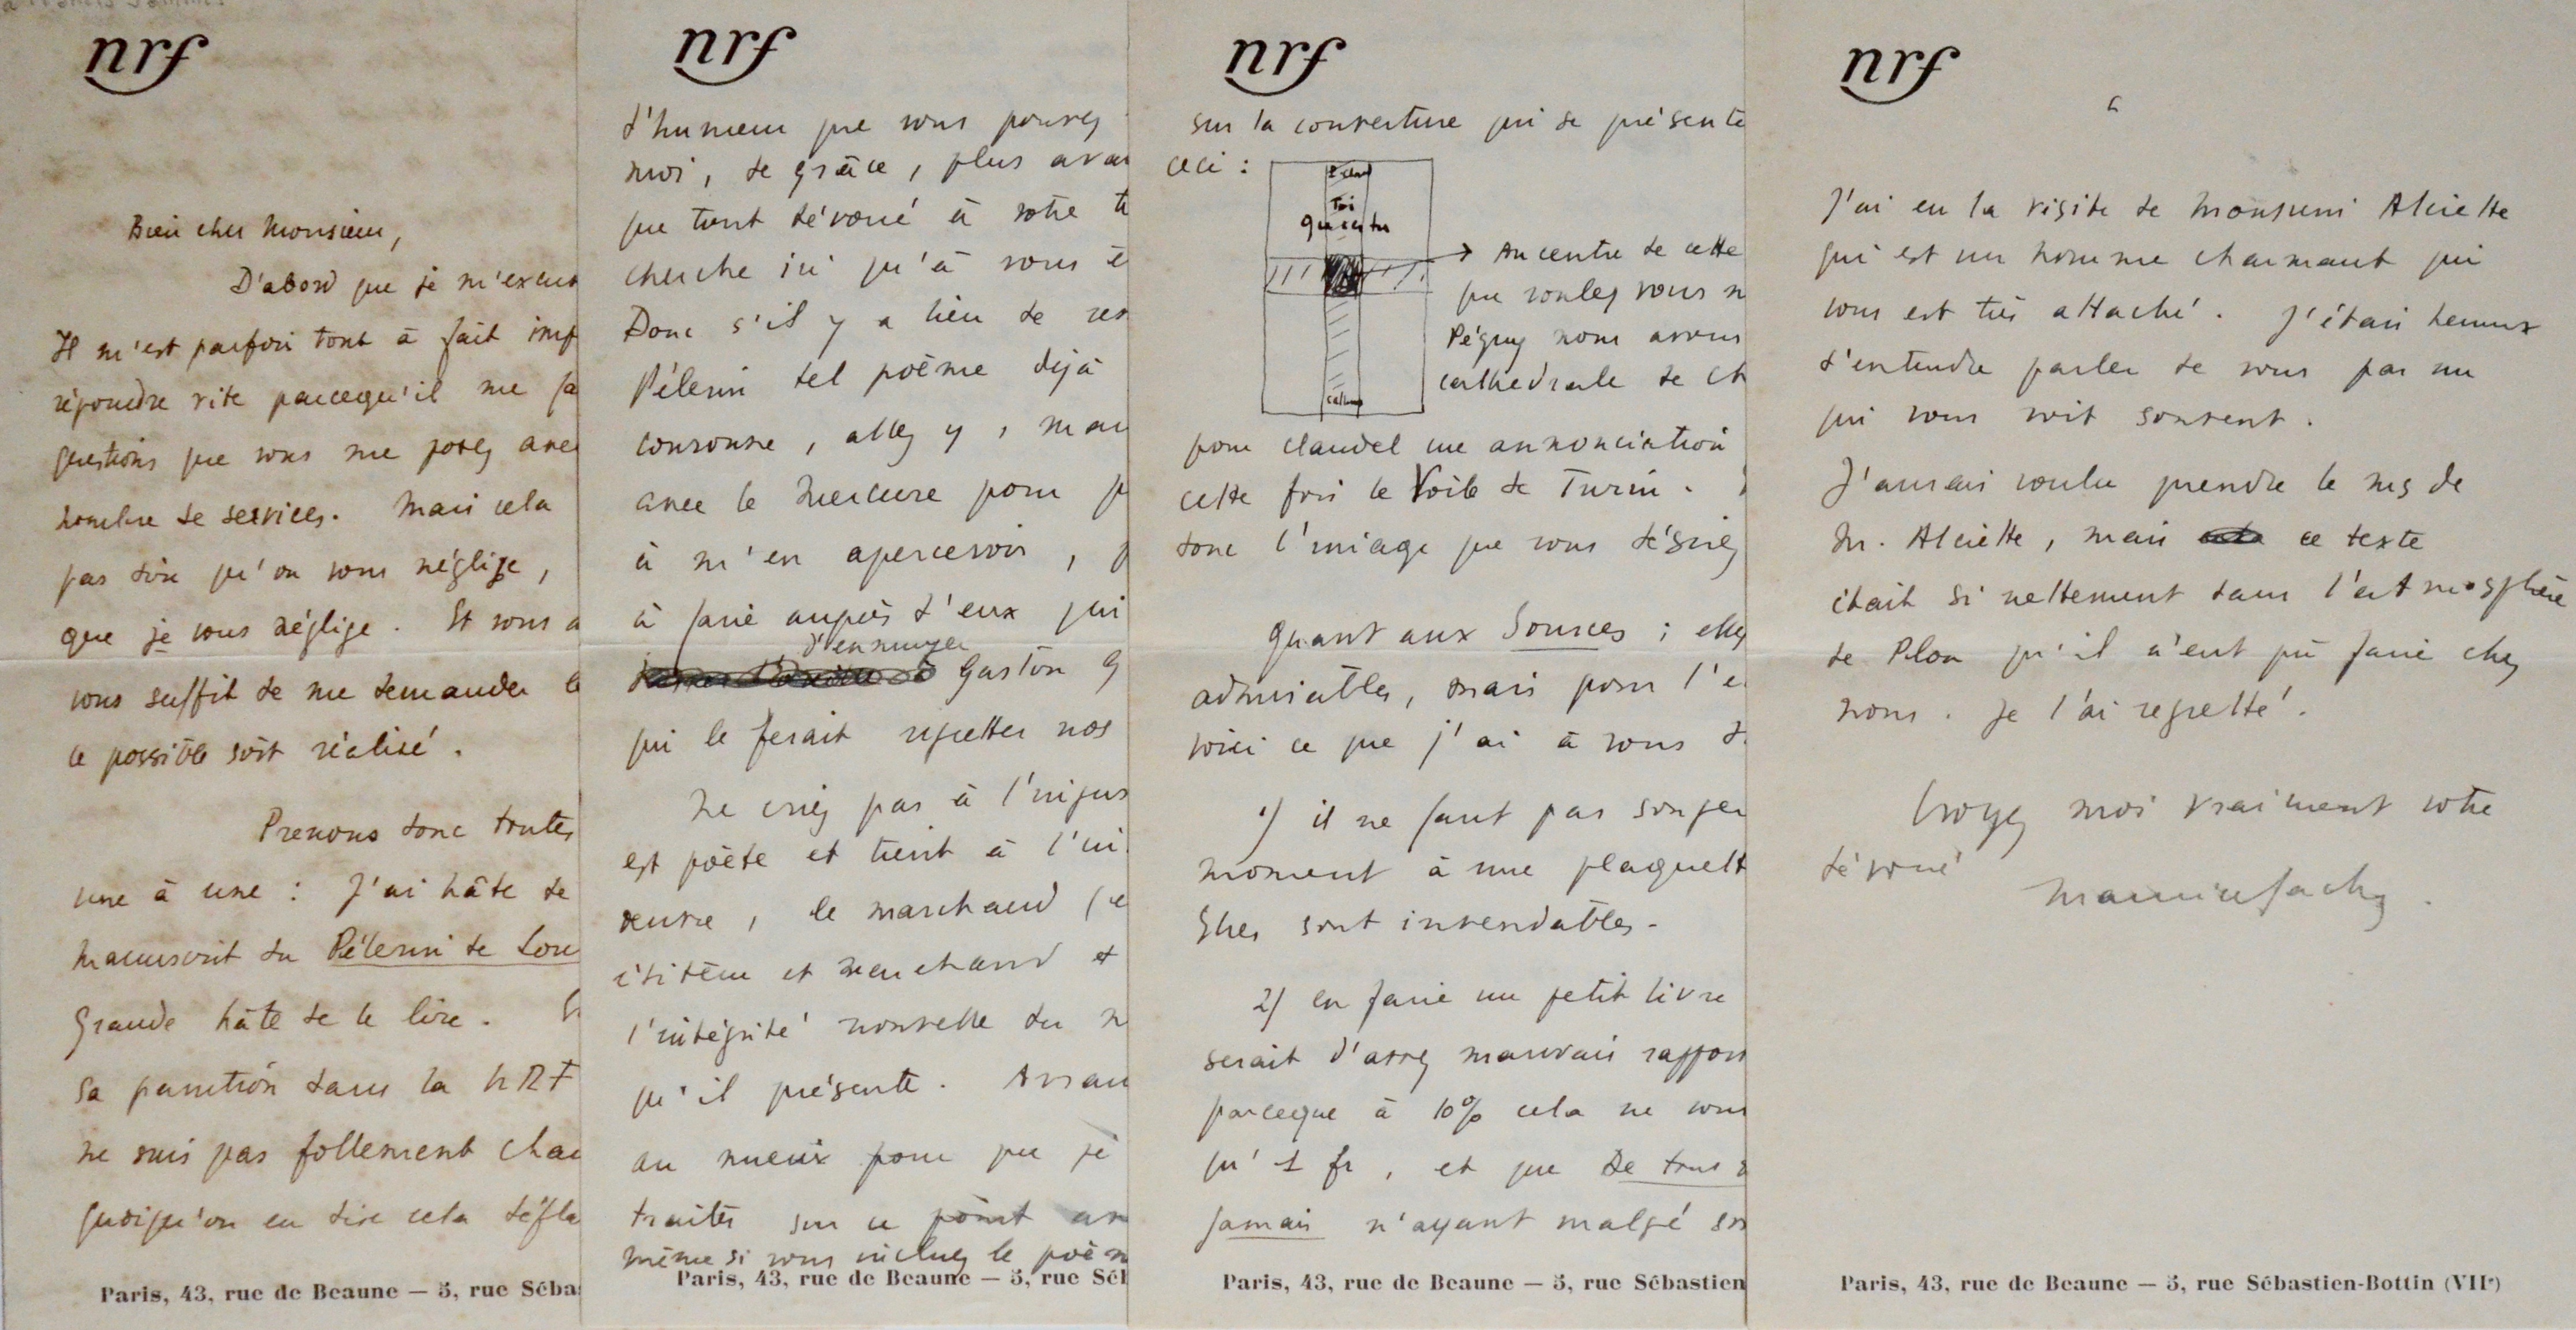 à Francis Jammes
nrf
Bien cher Monsieur,
D'abord que je m'excus
Il m'est parfois tout à fait imp
répondre vite parcequ'il me fa
questions que vous me posez avec
nombre de services. Mais cela
pas dire qu'on vous néglige,
que je vous néglige. Et vous a
vous suffit de me demander l
le possible soit réalisé.
Prenons donc toutes
une à une : J'ai hâte de
manuscrit du Pélerin de Lou
Grande hâte de le lire.
sa parution dans la NRF
ne suis pas follement chau
quoiqu'on en dise cela défla
Paris, 43, rue de Beaune — 5, rue Séba
nrf
d'humeur que vous pouvez
moi, de grâce, plus avan
que tout dévoué à votre
cherche ici qu'à vous ê
Donc s'il y a lieu de
Pélerin tel poème déjà
couronne, allez y, mai
avec le Mercure pour p
à m'en apercevoir,
à faire auprès d'eux qui
d'ennuyer
Gaston G
qui le ferait regretter nos
Ne criez pas à l'injus
est poète et tient à l'in
œuvre, le marchand
éditeur et marchand et
l'intégrité nouvelle du
qu'il présente.
au mieux pour que je
traités sur ce point av
même si vous incluez le poèm
Paris, 43, rue de Beaune — 5, rue Sé
nrf
sur la couverture qui se présente
ceci :
Toi
Qui es tu
→ Au centre de cette
que voulez vous
Péguy nous avons
cathédrale de Ch
pour Claudel une annonciation
cette fois le Voile de Turin.
donc l'image que vous désirez
Quant aux Sources ; elles
admirables, mais pour l'e
voici ce que j'ai à vous d
1) il ne faut pas songer
moment à une plaquett
Elles sont invendables.
2) en faire un petit livre
serait d'assez mauvais rapport
parceque à 10% cela ne vous
qu' 1 fr, et que De tous
jamais n'ayant malgré so
Paris, 43, rue de Beaune — 5, rue Sébastien
nrf
J'ai eu la visite de Monsieur Alciette
qui est un homme charmant qui
vous est très attaché. J'étais heureux
d'entendre parler de vous par un
qui vous voit souvent.
J'aurais voulu prendre le ms de
Mr. Alciette, mais ce texte
était si nettement dans l'atmosphère
de Plon qu'il n'eut pu faire chez
nous. Je l'ai regretté.
Croyez moi vraiment votre
dévoué
Maurice Sachs.
Paris, 43, rue de Beaune — 5, rue Sébastien-Bottin (VIIe)